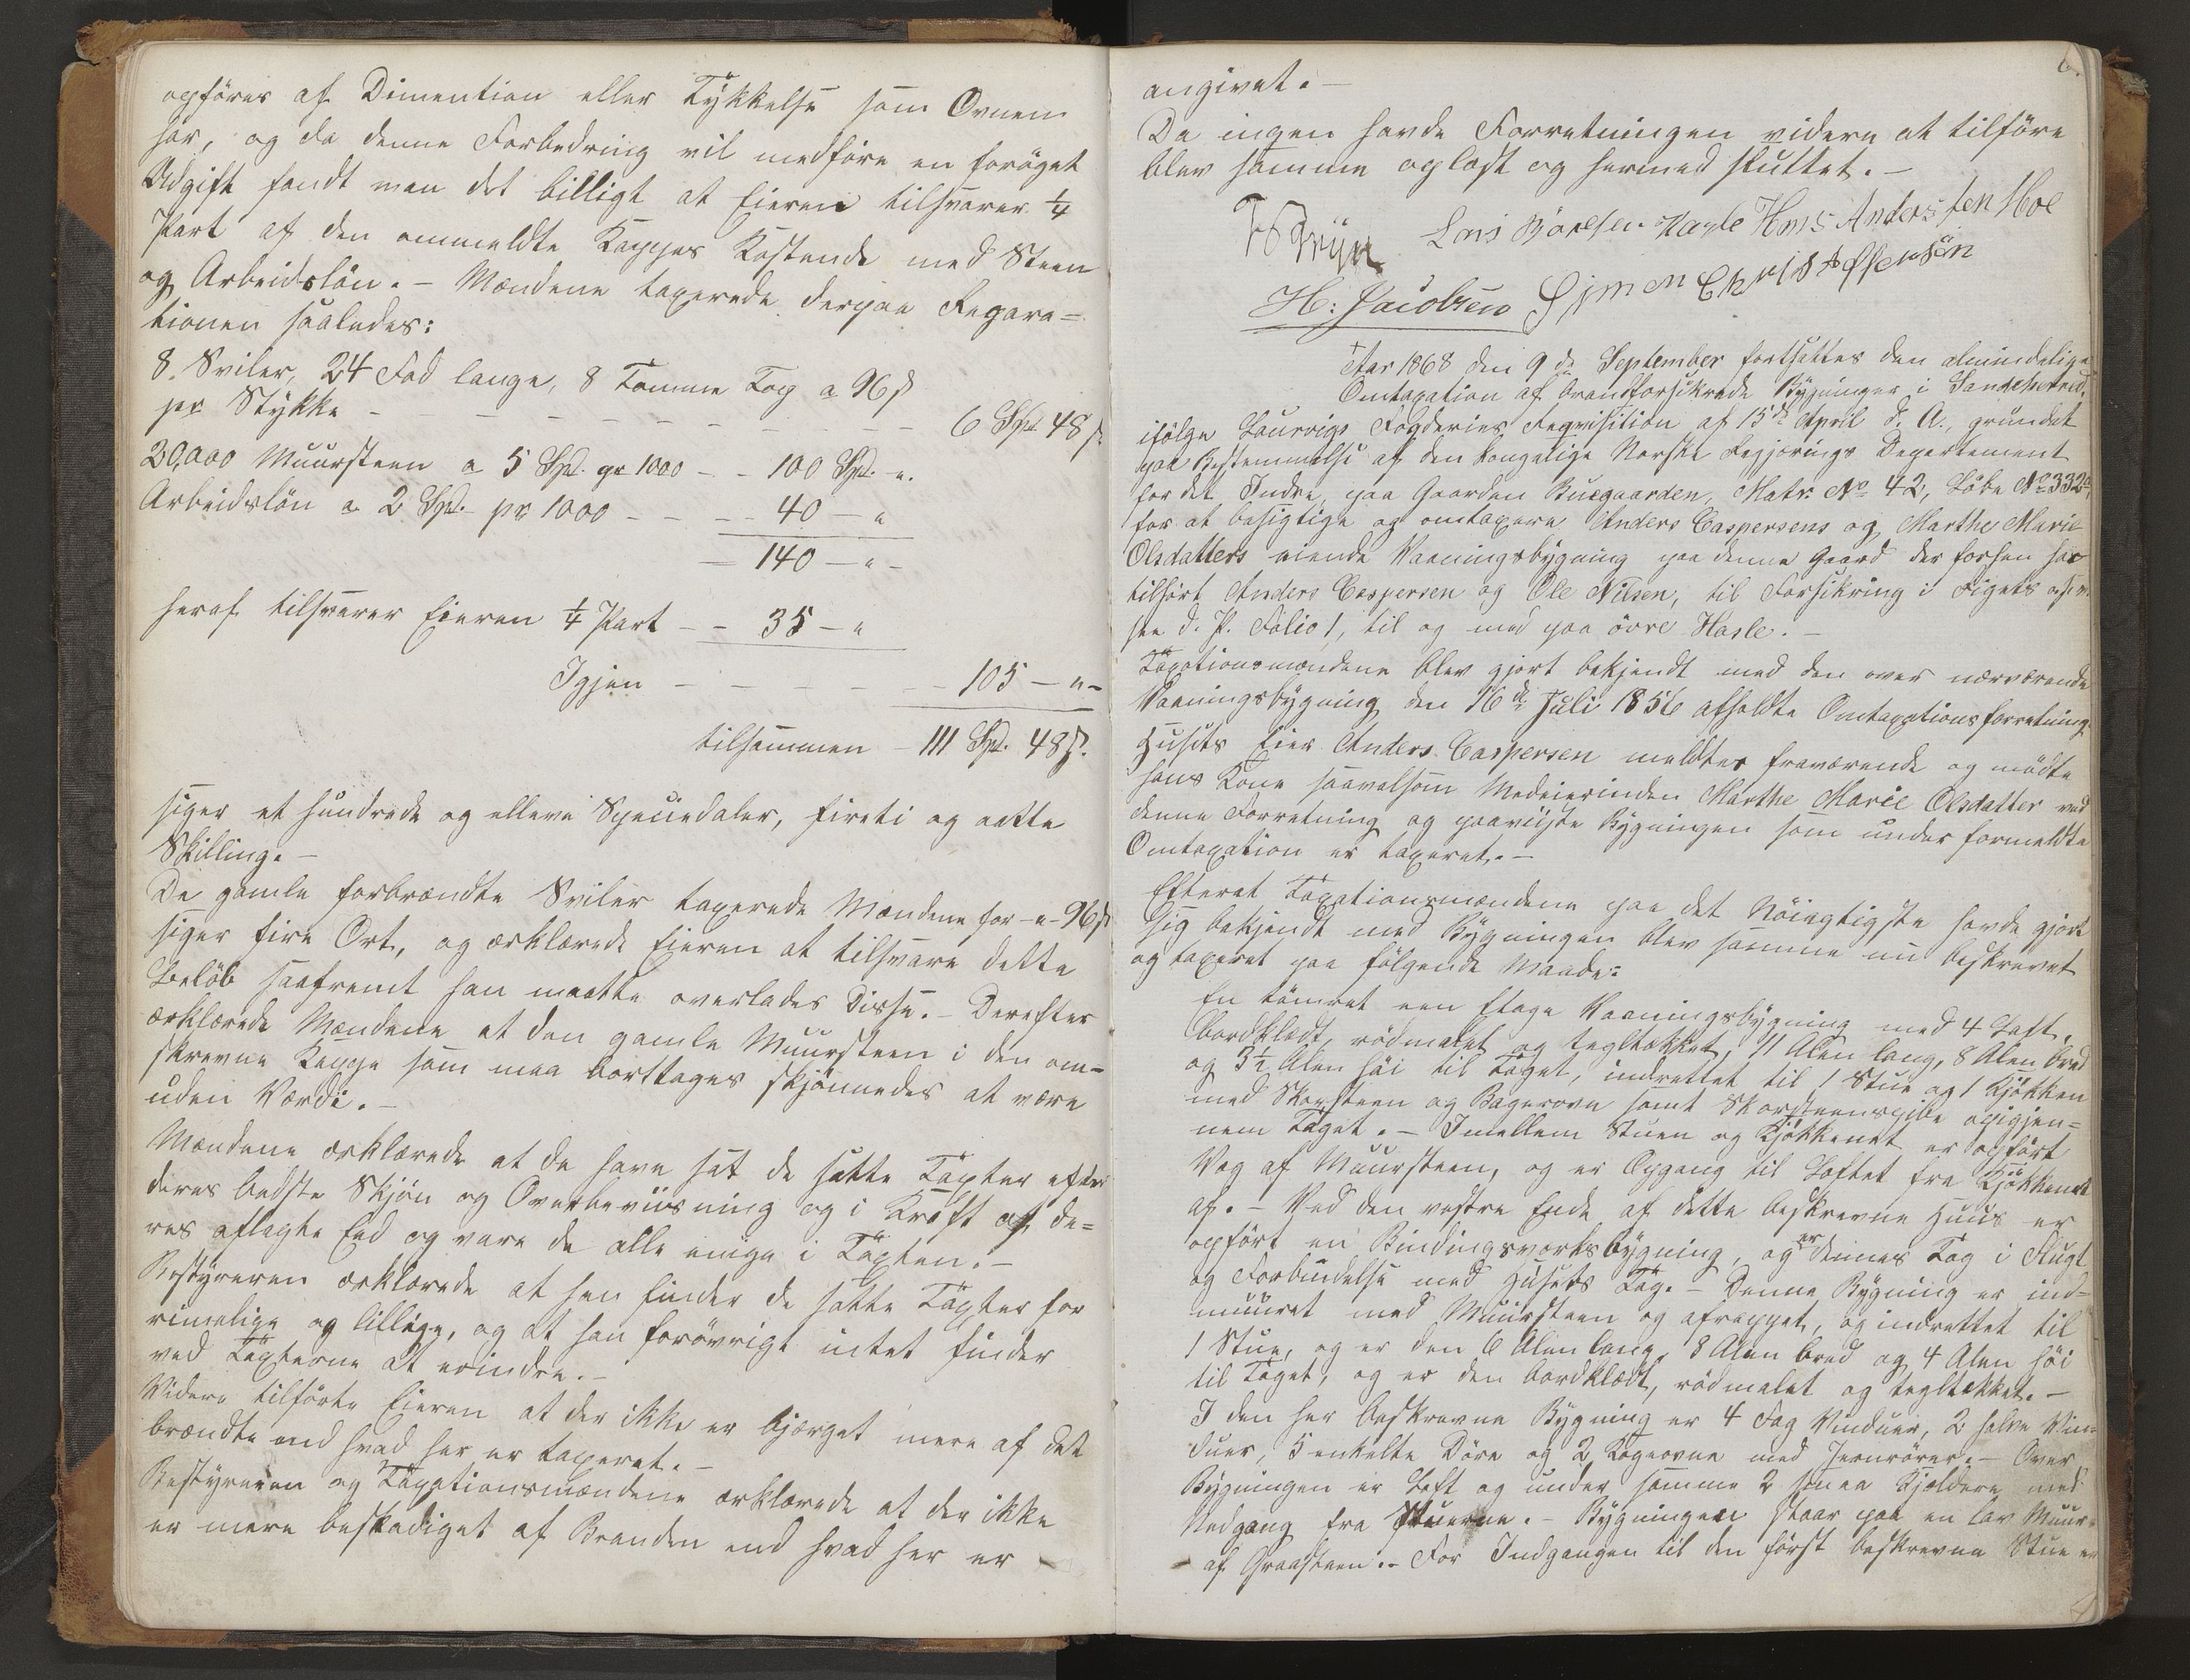 opföres af Dimention eller Tykkelse som Ovnen
har, og da denne Forbedring vil medföre en foröget
Udgift fandt man det billigt at Eieren tilsvarer ¼
Part af den ommeldte Kappes Kostende med Steen
og Arbeidslön. – Mændene taxerede derpaa Repara=
tionen saaledes:
8. Sviler, 24 Fod lange, 8 Tomme Top a 96 ß
pr Stykke – – – – – – – – 6 Spd. 48 ß.
20,000 Muursteen a 5 Spd. pr 1000 – – 100 Spd. „.
Arbeidslön a 2 Spd. pr 1000 – – – 40 – „
– 140 – „ –
heraf tilsvarer Eieren ¼ Part – – 35 – „
Igjen – – – – – – 105 – „ –
tilsammen – 111 Spd. 48 ß.
siger et hundrede og elleve Speciedaler, fireti og aatte
Skilling. –
De gamle forbrændte Sviler taxerede Mændene for – „ – 96 ß
siger fire Ort, og erklærede Eieren at tilsvare dette
Belöb saafremt han maatte overlades Disse. – Derefter
erklærede Mændene at den gamle Muursteen i den om=
skrevne Kappe som maa borttages skjönnedes at være
uden Værdi. –
Mændene erklærede at de have sat de satte Taxter efter
deres bedste Skjön og Overbeviisning og i Kraft af de=
res aflagte Eed og vare de alle enige i Taxten. –
Bestyreren erklærede at han finder de satte Taxter for
rimelige og billige, og at han forövrigt intet finder
ved Taxterne at erindre. –
Videre tilförte Eieren at der ikke er bjærget mere af det
brændte end hvad her er taxeret. –
Bestyreren og Taxationsmændene erklærede at der ikke
er mere beskadiget af Branden end hvad her er –
6.
angivet. –
Da ingen havde Forretningen videre at tilföre
blev samme oplæst og hermed sluttet. –
Lars Hasle Hans Andersen Moe
H: Jacobsen Simen Christoffersön
Aar 1868 den 9de September fortsattes den almindelige
Omtaxation af brandforsikrede Bygninger i Sandeherred,
ifölge Laurvigs Fogderies Reqvisition af 15de April d. A., grundet
paa Bestemmelse af den kongelige Norske Regjerings Departement
for det Indre, paa Gaarden Buegaarden, Matr. No 42, Löbe No 332a,
for at besigtige og omtaxere Anders Caspersens og Marthe Marie
Olsdatters eiende Vaaningsbygning paa denne Gaard der forhen har
tilhört Anders Caspersen og Ole Nilsen, til Forsikring i Rigets
see d. P. Folio 1, til og med paa övre Hasle. –
Taxationsmændene blev gjort bekjendt med den over nærværende
Vaaningsbygning den 16de Juli 1856 afholdte Omtaxationsforretning.
Husets Eier Anders Caspersen meldtes fraværende og mödte
hans Kone saavelsom Medeierinden Marthe Marie Olsdatter ved
denne Forretning og paaviiste Bygningen som under formeldte
Omtaxation er taxeret. –
Efterat Taxationsmændene paa det Nöiagtigste havde gjort
sig bekjendt med Bygningen blev samme nu beskrevet
og taxeret paa fölgende Maade:
En tömret een Etage Vaaningsbygning med 4 Laft,
bordklædt, rödmalet og tegltækket, 11 Alen lang, 8 Alen bred
og 3½ Alen höi til Taget, indrettet til 1 Stue og 1 Kjökken
med Skorsteen og Bagerovn samt Skorsteenspibe opigjen=
nem Taget. – Imellem Stuen og Kjökkenet er opfört
Væg af Muursteen, og er Opgang til Loftet fra Kjökkenet
af. – Ved den vestre Ende af dette beskrevne Huus er
opfört en Bindingsværksbygning, og er dennes Tag i Flugt
og Forbindelse med Husets Tag. – Denne Bygning er ind=
muuret med Muursteen og afrappet, og indrettet til
1 Stue, og er den 6 Alen lang, 8 Alen bred og 4 Alen höi
til Taget, og er den bordklædt, rödmalet og tegltækket. –
I den her beskrevne Bygning er 4 Fag Vinduer, 2 halve Vin=
duer, 5 enkelte Döre og 2 Kogeovne med Jernrörer. – Over
Bygningen er Loft og under samme 2 smaa Kjældere med
Nedgang fra Stuerne. – Bygningen staar paa en lav Muur
af Graasteen. – For Indgangen til den först beskrevne Stue er